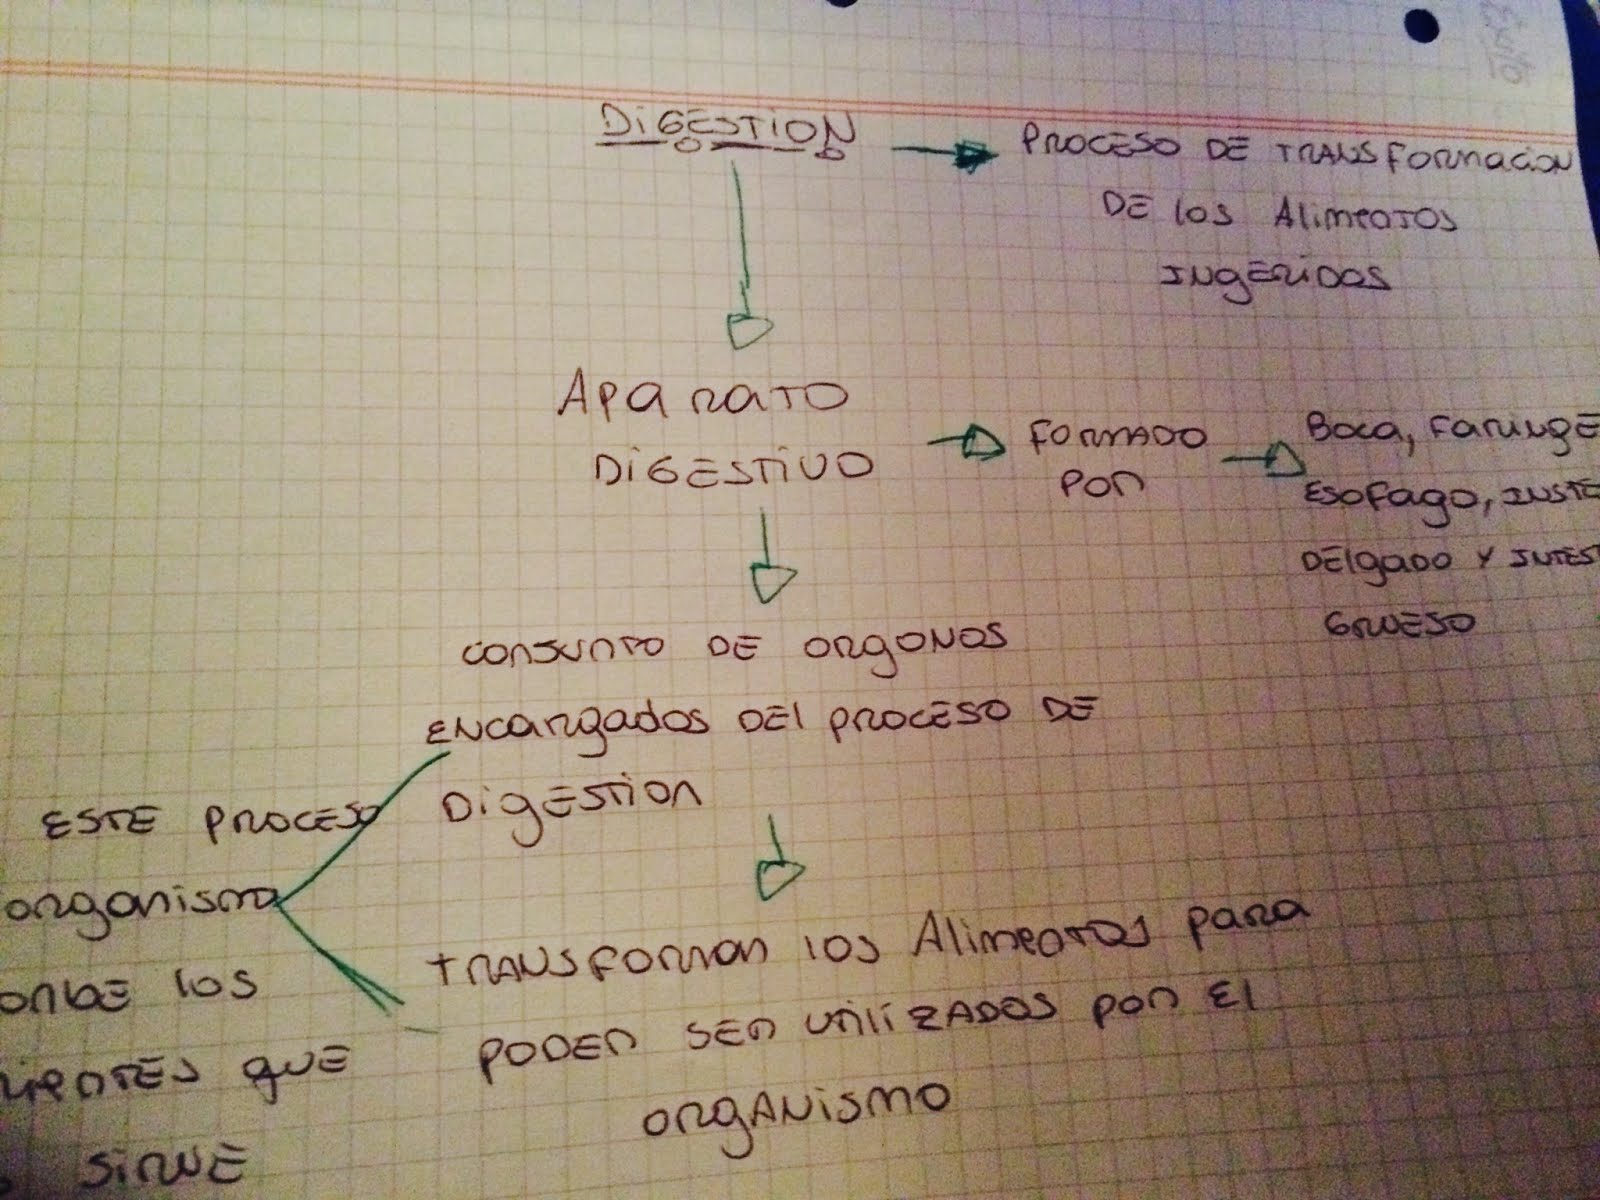 Esto
DIGESTION
PROCESO DE TRANSFORMACION
DE LOS ALIMENTOS
INGERIDOS
APARATO
DIGESTIVO
FORMADO
POR
BOCA, FARINGE
ESOFAGO, INSTE
DELGADO Y INTES
GRUESO
CONJUNTO DE ORGONOS
ENCARGADOS DEL PROCESO DE
DIGESTION
TRANSFORMAN LOS ALIMENTOS PARA
PODER SER UTILIZADOS POR EL
ORGANISMO
ESTE PROCESO
ORGANISMO
LOS
QUE
SIRVE